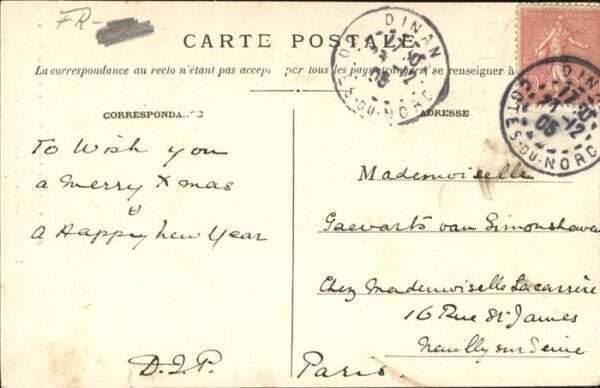 FR-
CARTE POSTALE
La correspondance au recto n'étant pas accep par tous les pays étrangers se renseigner à
CORRESPONDA CE
ADRESSE
To Wish you
a merry Xmas
&
a Happy New Year
D.I.P.
Mademoiselle
Gevarts van Simonshaven
Chez Mademoiselle Lacarrère
16 Rue St James
Neuilly sur Seine
Paris.
DINAN
23-12
05
COTES-DU-NORD
DINAN
23-12
05
COTES-DU-NORD